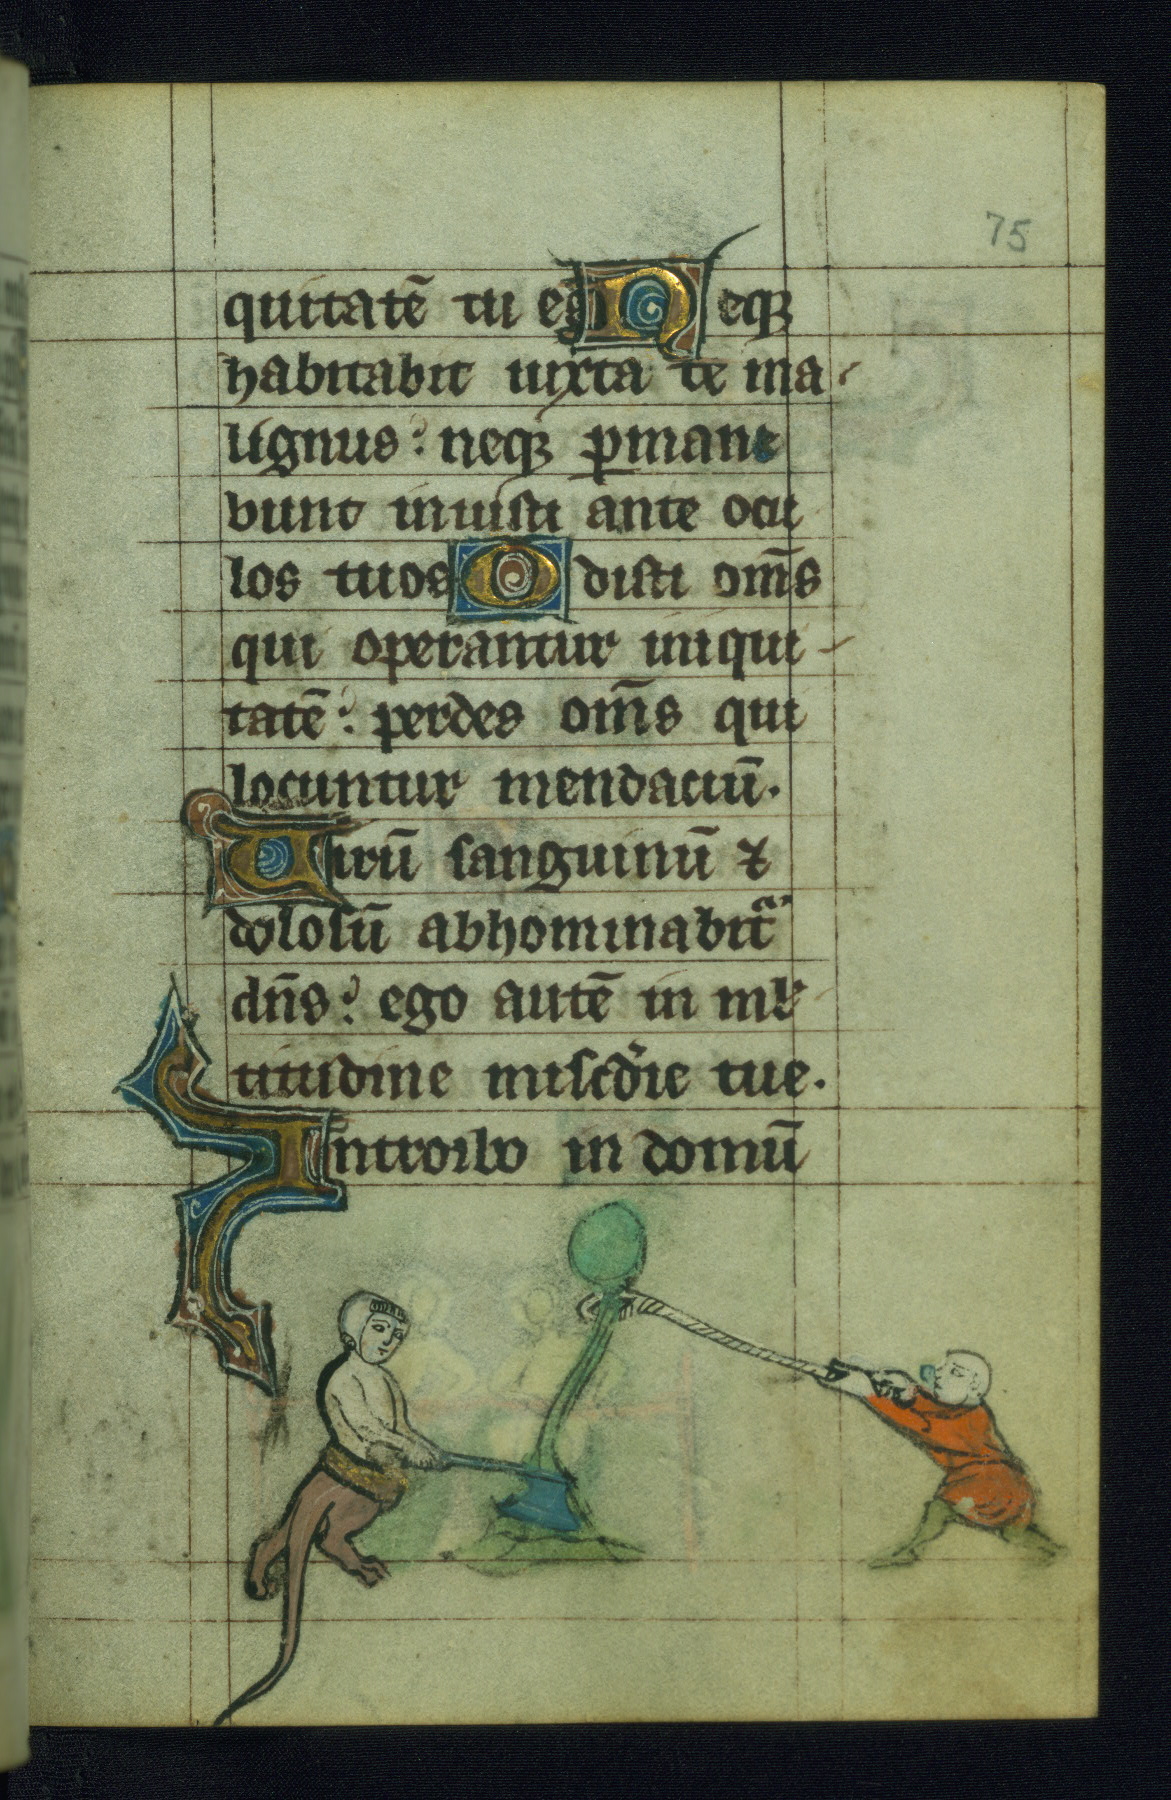 75
quitatē tu es Neqꝫ
habitabit iuxta te ma
lignus: neqꝫ ꝑmane
bunt iniusti ante ocu
los tuos Odisti om̄s
qui operantur iniqui
tatē: perdes om̄s qui
locuntur mendaciū.
Uirū sanguinū ⁊
dolosū abhominabitᵃ
dn̄s: ego autē in ml
titudine misc̄die tue.
Introibo in domū